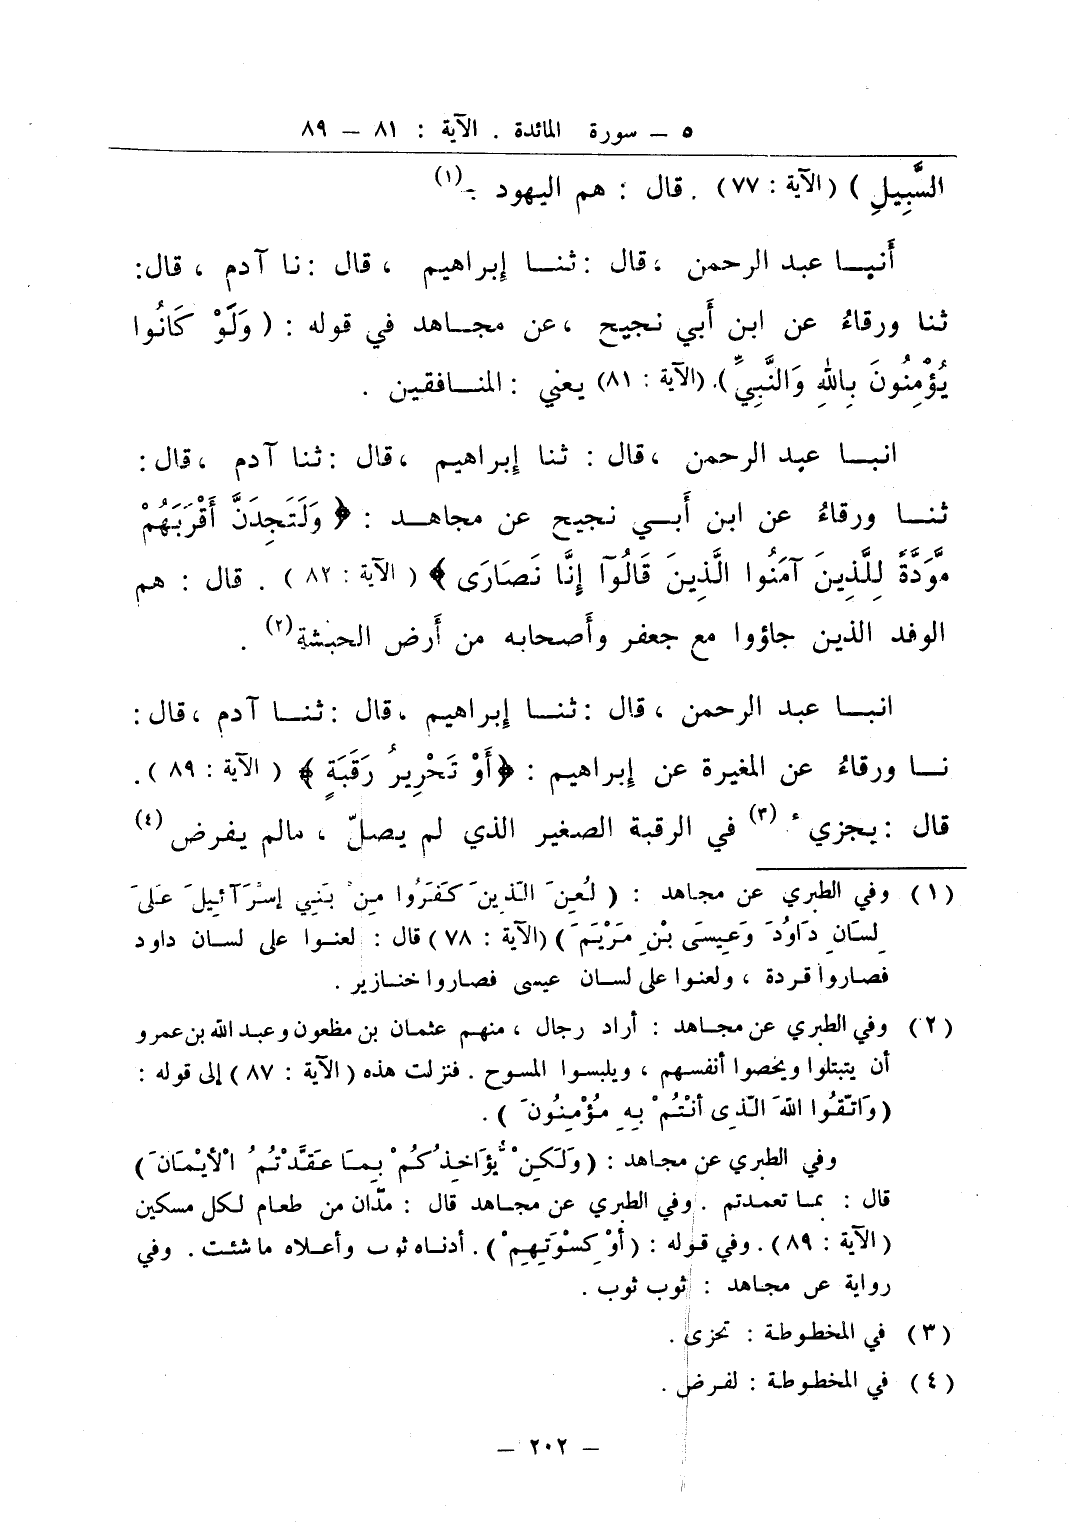 ٥ ــ سورة المائدة . الآية : ٨١ ــ ٨٩
السَّبِيلِ ) ( الآية : ٧٧ ) . قال : هم اليهود .(١)
أَنبا عبد الرحمن ، قال : ثنا إبراهيم ، قال : نا آدم ، قال:
ثنا ورقاءُ عن ابن أَبي نجيح ، عن مجاهد في قوله : ( وَلَوْ كَانُوا
يُؤْمِنُونَ بِاللهِ وَالنَّبِيِّ ). (الآية : ٨١) يعني : المنافقين .
انبا عبد الرحمن ، قال : ثنا إِبراهيم ، قال : ثنا آدم ، قال :
ثنا ورقاءُ عن ابن أَبي نجيح عن مجاهد : ﴿ وَلَتَجِدَنَّ أَقْرَبَهُمْ
مَّوَدَّةً لِلَّذِينَ آمَنُوا الَّذِينَ قَالُوآ إِنَّا نَصَارَى ﴾ ( الآية : ٨٢ ) . قال : هم
الوفد الذين جاؤوا مع جعفر وأَصحابه من أَرض الحبشة(٢) .
انبا عبد الرحمن ، قال : ثنا إِبراهيم ، قال : ثنا آدم ، قال :
نا ورقاءُ عن المغيرة عن إِبراهيم : ﴿ أَوْ تَحْرِيرُ رَقَبَةٍ ﴾ ( الآية : ٨٩ ) .
قال : يجزيء (٣) في الرقبة الصغير الذي لم يصلّ ، مالم يفرض (٤)
(١) وفي الطبري عن مجاهد : ( لُعِنَ الّذِينَ كَفَرُوا مِنْ بَنِي إسْرَآئِيلَ عَلَى
لِسَانِ دَاوُدَ وَعِيسَى بْنِ مَرْيَمَ ) (الآية : ٧٨) قال : لعنوا على لسان داود
فصاروا قردة ، ولعنوا على لسان عيسى فصاروا خنازير .
(٢) وفي الطبري عن مجاهد : أراد رجال ، منهم عثمان بن مظعون وعبد الله بن عمرو
أن يتبتلوا ويخصوا أنفسهم ، ويلبسوا المسوح . فنزلت هذه ( الآية : ٨٧ ) إلى قوله :
( وَاتّقُوا اللهَ الّذِى أنْتُمْ بِهِ مُؤْمِنُونَ ) .
وفي الطبري عن مجاهد : ( وَلَكِنْ يُؤَاخِذُكُمْ بِمَا عَقَّدْتُمُ الْأيْمَانَ )
قال : بما تعمدتم . وفي الطبري عن مجاهد قال : مدّان من طعام لكل مسكين
(الآية : ٨٩) . وفي قوله : ( أوْ كِسْوَتِهِمْ ) . أدناه ثوب وأعلاه ما شئت . وفي
رواية عن مجاهد : ثوب ثوب .
(٣) في المخطوطة : تحزى .
(٤) في المخطوطة : لفرض .
— ٢٠٢ —